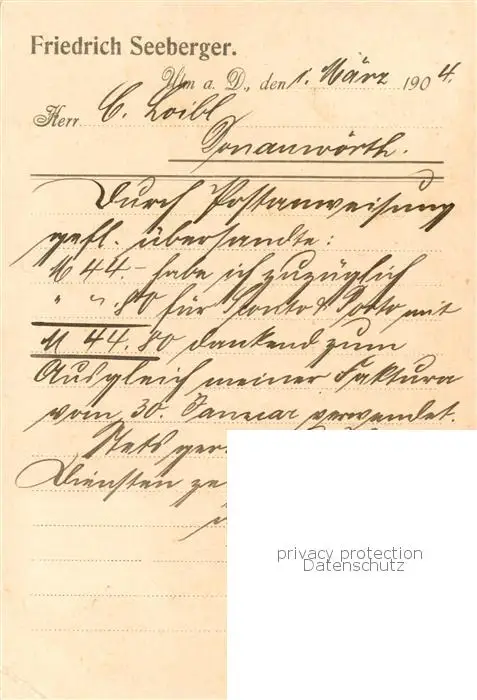 Friedrich Seeberger.
Ulm a. D., den 1. März 1904.
Herr C. Loibl
Donauwörth.
Durch Postanweisung
gefl. übersandte:
M 44.– habe ich zuzüglich
" –.80 für Sconto & Porto mit
M 44.80 dankend zum
Ausgleich meiner Faktura
vom 30. Januar verwendet.
Stets
Diensten
privacy protection
Datenschutz